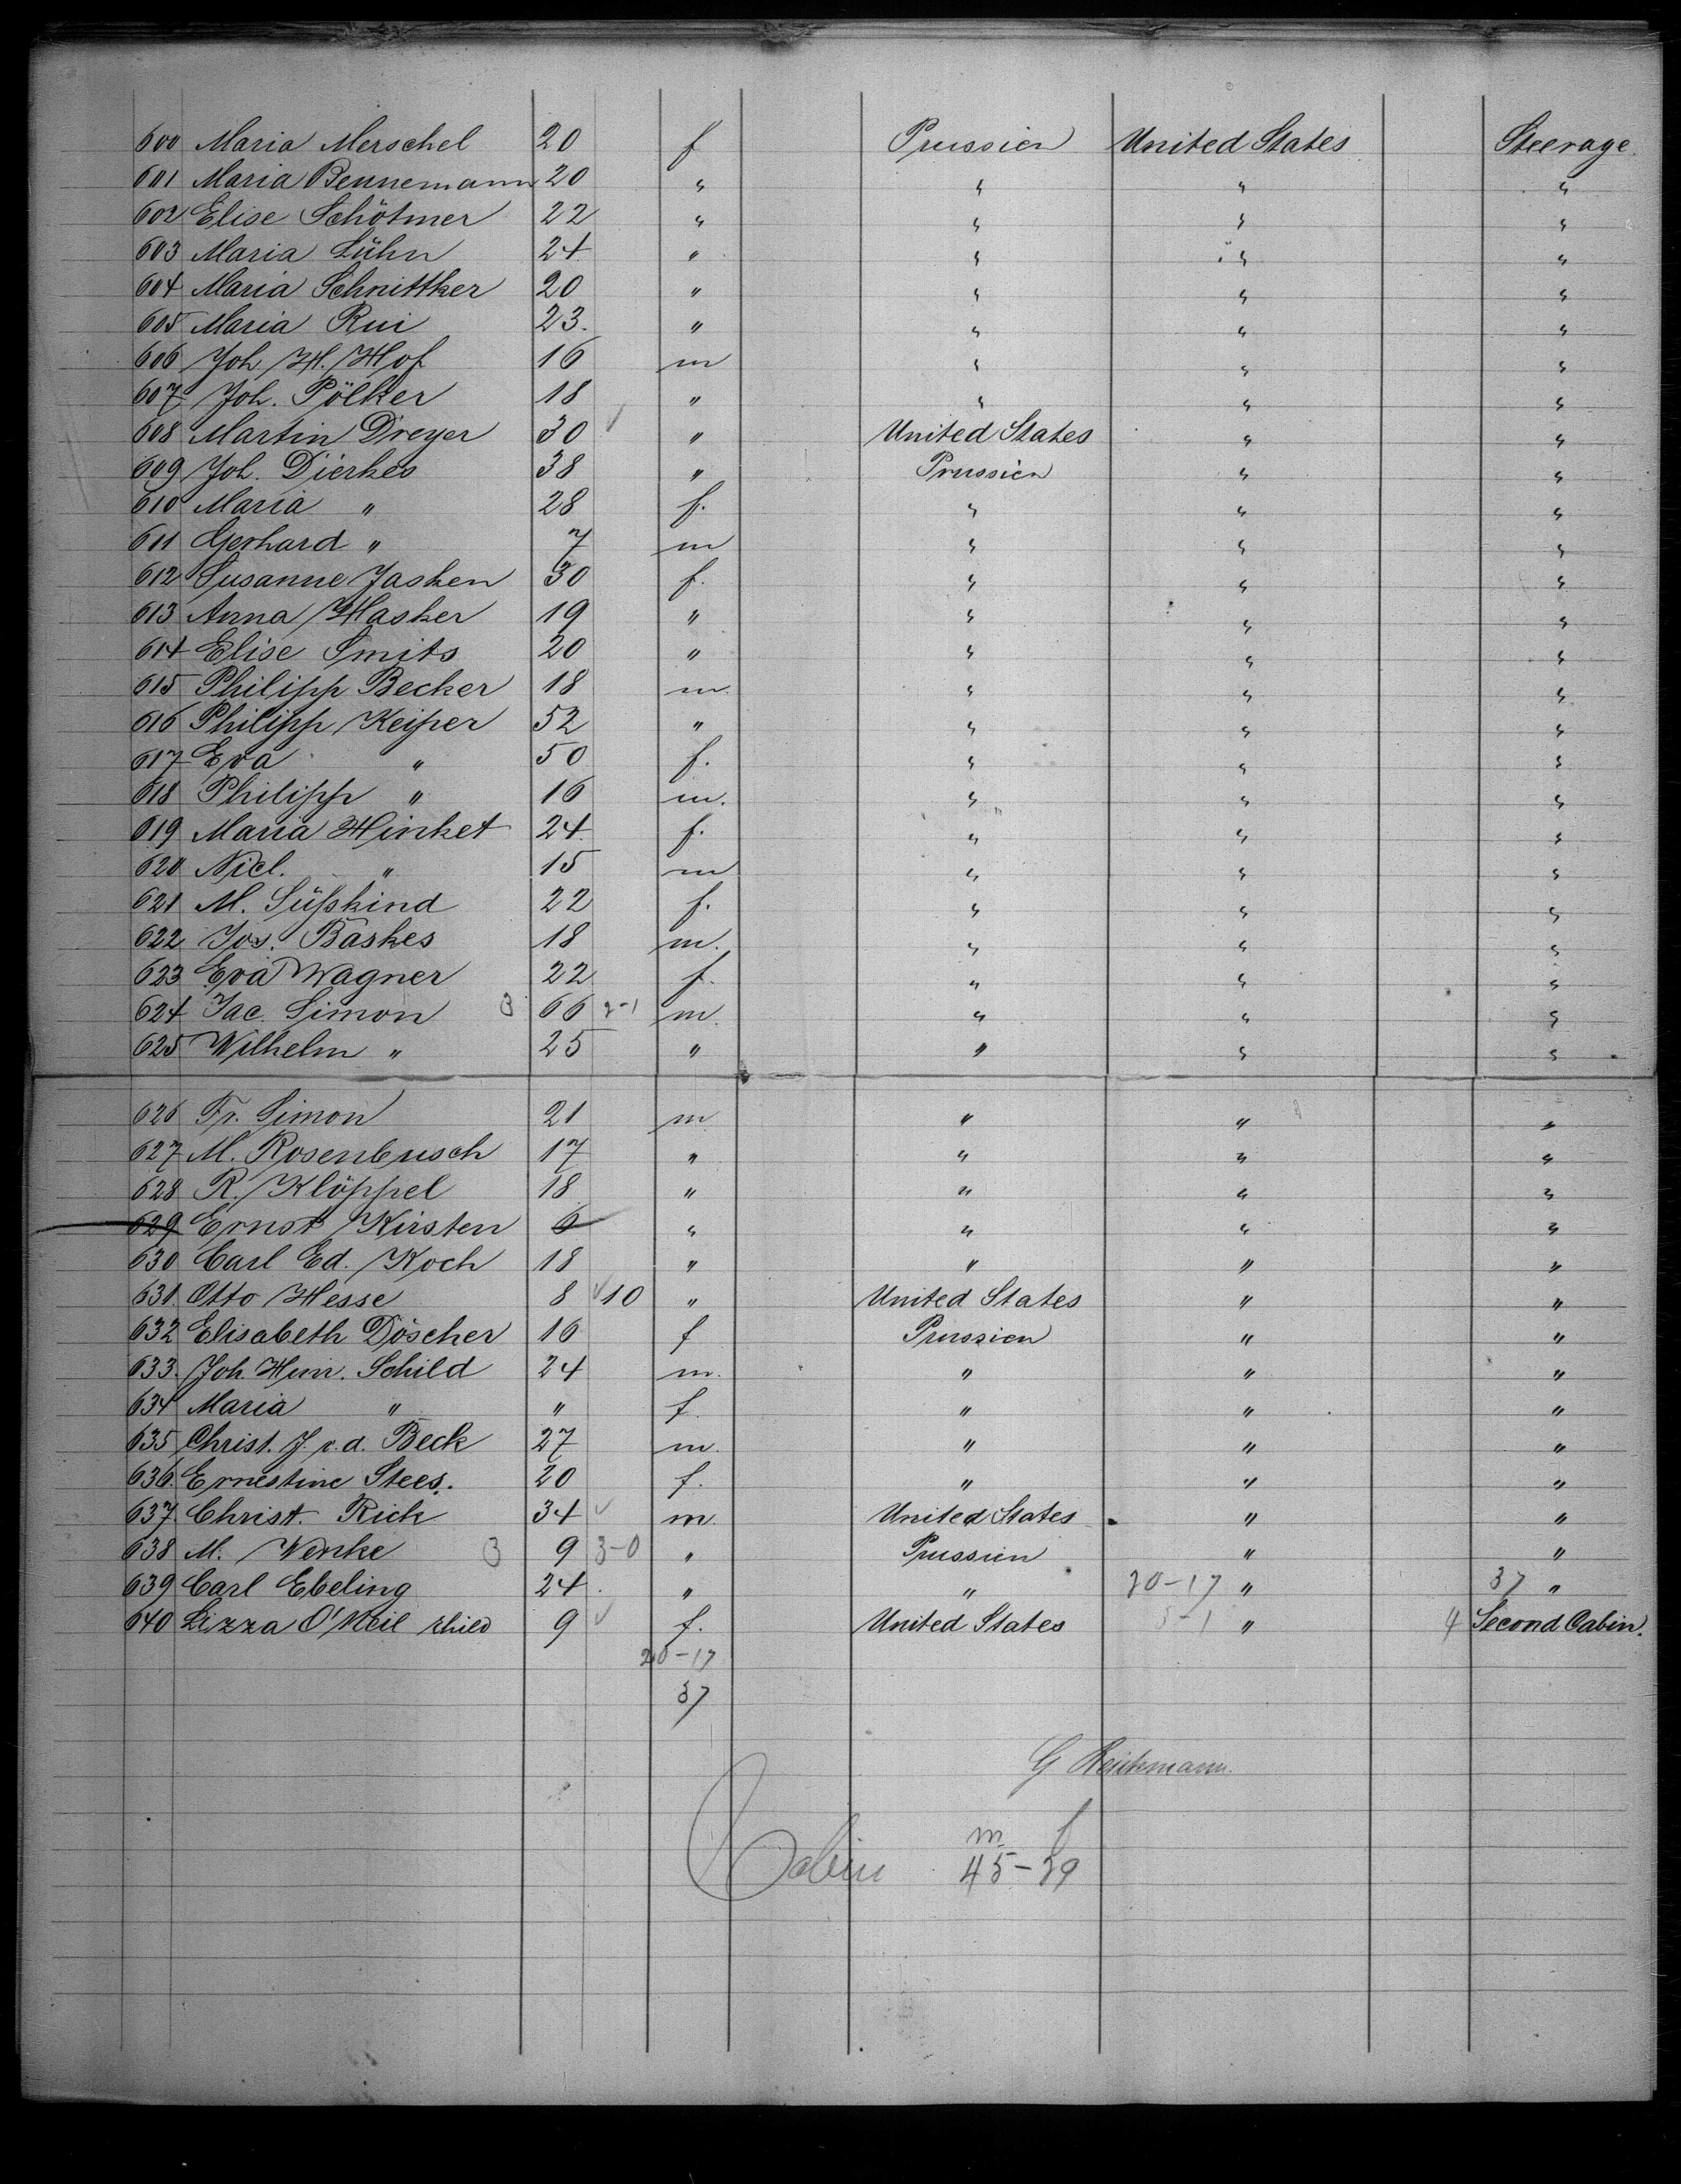 600 Maria Merschel 20 f Prussien United States Steerage.
601 Maria Bennemann 20 " " " "
602 Elise Schötmer 22 " " " "
603 Maria Lühn 24 " " " "
604 Maria Schnittker 20 " " " "
605 Maria Rui 23. " " " "
606 Joh. H. Hof 16 m " " "
607 Joh. Pölker 18 " " " "
608 Martin Dreyer 30 ✓ " United States " "
609 Joh. Dierkes 38 " Prussien " "
610 Maria " 28 f. " " "
611 Gerhard " 7 m " " "
612 Susanne Jasken 30 f. " " "
613 Anna Hasker 19 " " " "
614 Elise Smits 20 " " " "
615 Philipp Becker 18 m. " " "
616 Philipp Keiper 52 " " " "
617 Eva " 50 f. " " "
618 Philipp " 16 m. " " "
619 Maria Hinket 24 f. " " "
620 Nicl. " 15 m " " "
621 M. Süßkind 22 f. " " "
622 Jos. Baskes 18 m. " " "
623 Eva Wagner 22 f. " " "
624 Jac. Simon 3 66 2-1 m. " " "
625 Wilhelm " 25 " " " "
626 Fr. Simon 21 m " " "
627 M. Rosenbusch 17 " " " "
628 R. Klöppel 18 " " " "
629 Ernst Kirsten 6 " " " "
630 Carl Ed. Koch 18 " " " "
631. Otto Hesse 8 ✓ 10 " United States " "
632 Elisabeth Döscher 16 f Prussien " "
633. Joh. Heinr. Schild 24 m. " " "
634 Maria " " f. " " "
635 Christ. J. v. d. Beck 27 m. " " "
636. Ernestine Stees. 20 f. " " "
637. Christ. Rick 34 ✓ m. United States " "
638 M. Wenke 3 9 3-0 " Prussien " "
639 Carl Ebeling 24 " " 20-17 " 37 "
640 Lizza O'Neil child 9 ✓ f. United States 3-1 " 4 Second Cabin.
20-17
37
G Reichmann.
m f
Cabin 45-39